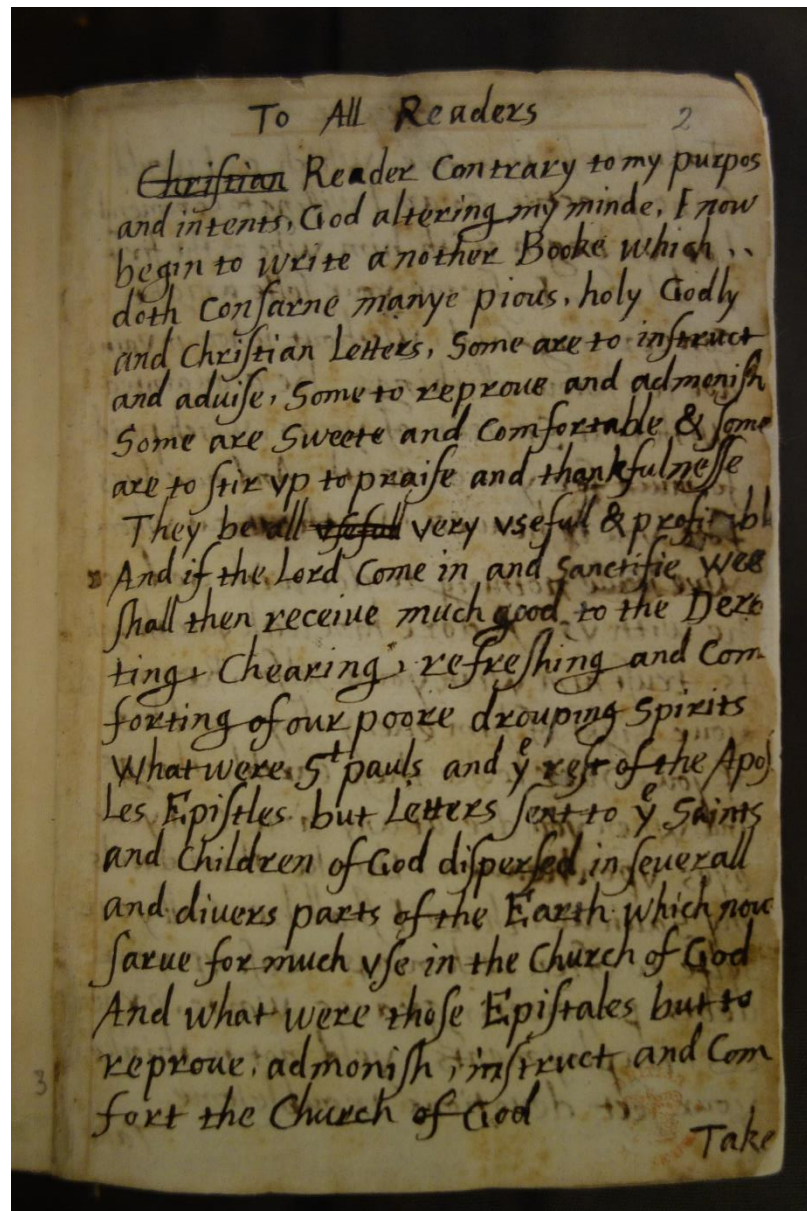 To All Readers 2
Christian Reader Contrary to my purpos
and intents, God altering my minde, I now
begin to write another Booke which ..
doth Consarne manye pious, holy Godly
and Christian Letters, Some are to instruct
and aduise, Some to reproue and admonish
Some are Sweete and Comfortable & some
are to stir vp to praise and thankfulnesse
They be all usefull very vsefull & profitabl
And if the Lord Come in and Sanctifie Wee
shall then receiue much good to the
ting, Chearing, refreshing and Com
forting of our poore drouping Spirits
What were St pauls and ye rest of the Apos
Les Epistles but Letters sent to ye Saints
and Children of God dispersed in seuerall
and diuers parts of the Earth which now
sarue for much vse in the Church of God
And what were those Epistales but to
reproue, admonish, instruct, and Com
fort the Church of God
Take
3